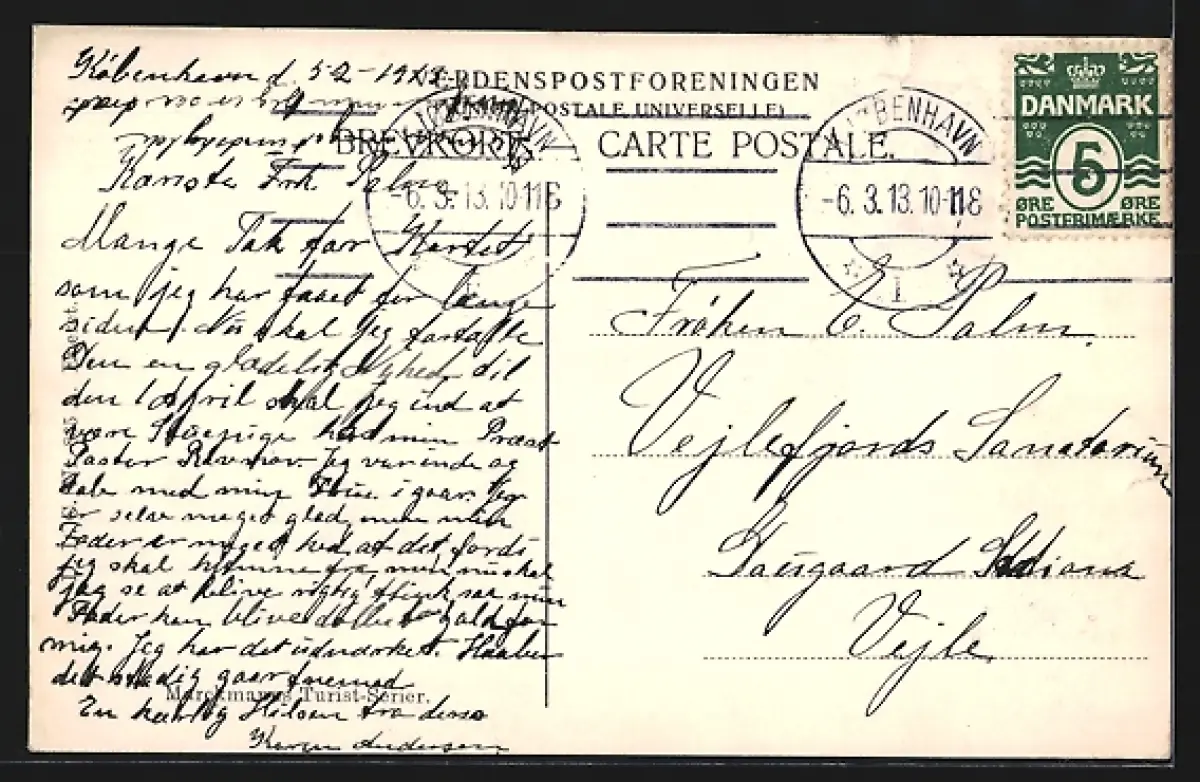 København d. 5-2-1913
VERDENSPOSTFORENINGEN
POSTALE UNIVERSELLE)
BREVKORT. CARTE POSTALE.
KØBENHAVN
-6.3.13.10-11E
KØBENHAVN
-6.3.13.10-11E
1
DANMARK
5
ØRE ØRE
POSTFRIMÆRKE
Kæreste Frk Palm
Mange Tak for Kortet
som jeg har faaet for længe
siden. Nu skal jeg fortælle
Dem en glædelig Nyhed til
den 1 April skal jeg ind at
være Stuepige hos min Præst
Pastor Ravnhov. Jeg var inde og
tale med min Frue i gaar. Jeg
er selv meget glad, men min
Fader er meget ked af det fordi
jeg skal hjemme fra men nu skal
jeg se at blive rigtig flink saa min
Fader kan blive glad for
mig. Jeg har det udmærket. Haaber
det stadig gaar fremad
En kærlig Hilsen fra deres
Karen Andersen
Marckmanns Turist-Serier.
Frøken E. Palm.
Vejlefjords Sanatorium
Daugaard Station
Vejle